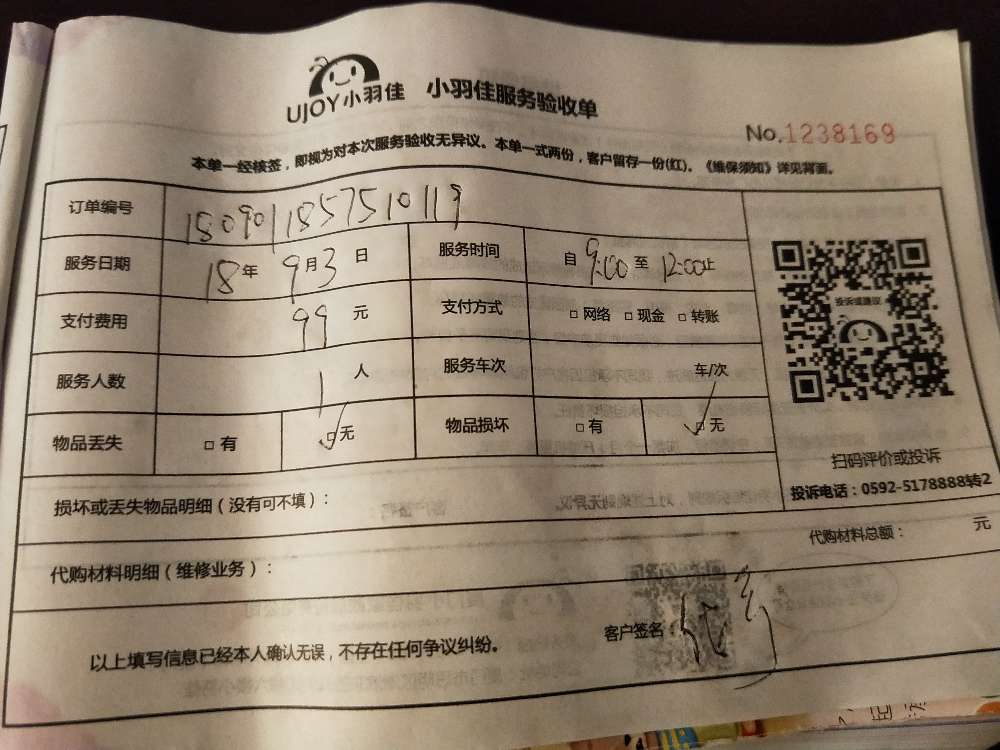 UJOY小羽佳 小羽佳服务验收单
No.1238169
本单一经核签，即视为对本次服务验收无异议。本单一式两份，客户留存一份(红)。《维保须知》详见背面。
订单编号 1809011857510119
服务日期 18年 9月3日 服务时间 自9:00至12:00止
支付费用 99元 支付方式 □网络 □现金 □转账
服务人数 1人 服务车次 车/次
物品丢失 □有 ☑无 物品损坏 □有 ☑无
投诉或建议
扫码评价或投诉
投诉电话：0592-5178888转2
损坏或丢失物品明细（没有可不填）：
代购材料明细（维修业务）： 代购材料总额： 元
以上填写信息已经本人确认无误，不存在任何争议纠纷。 客户签名：